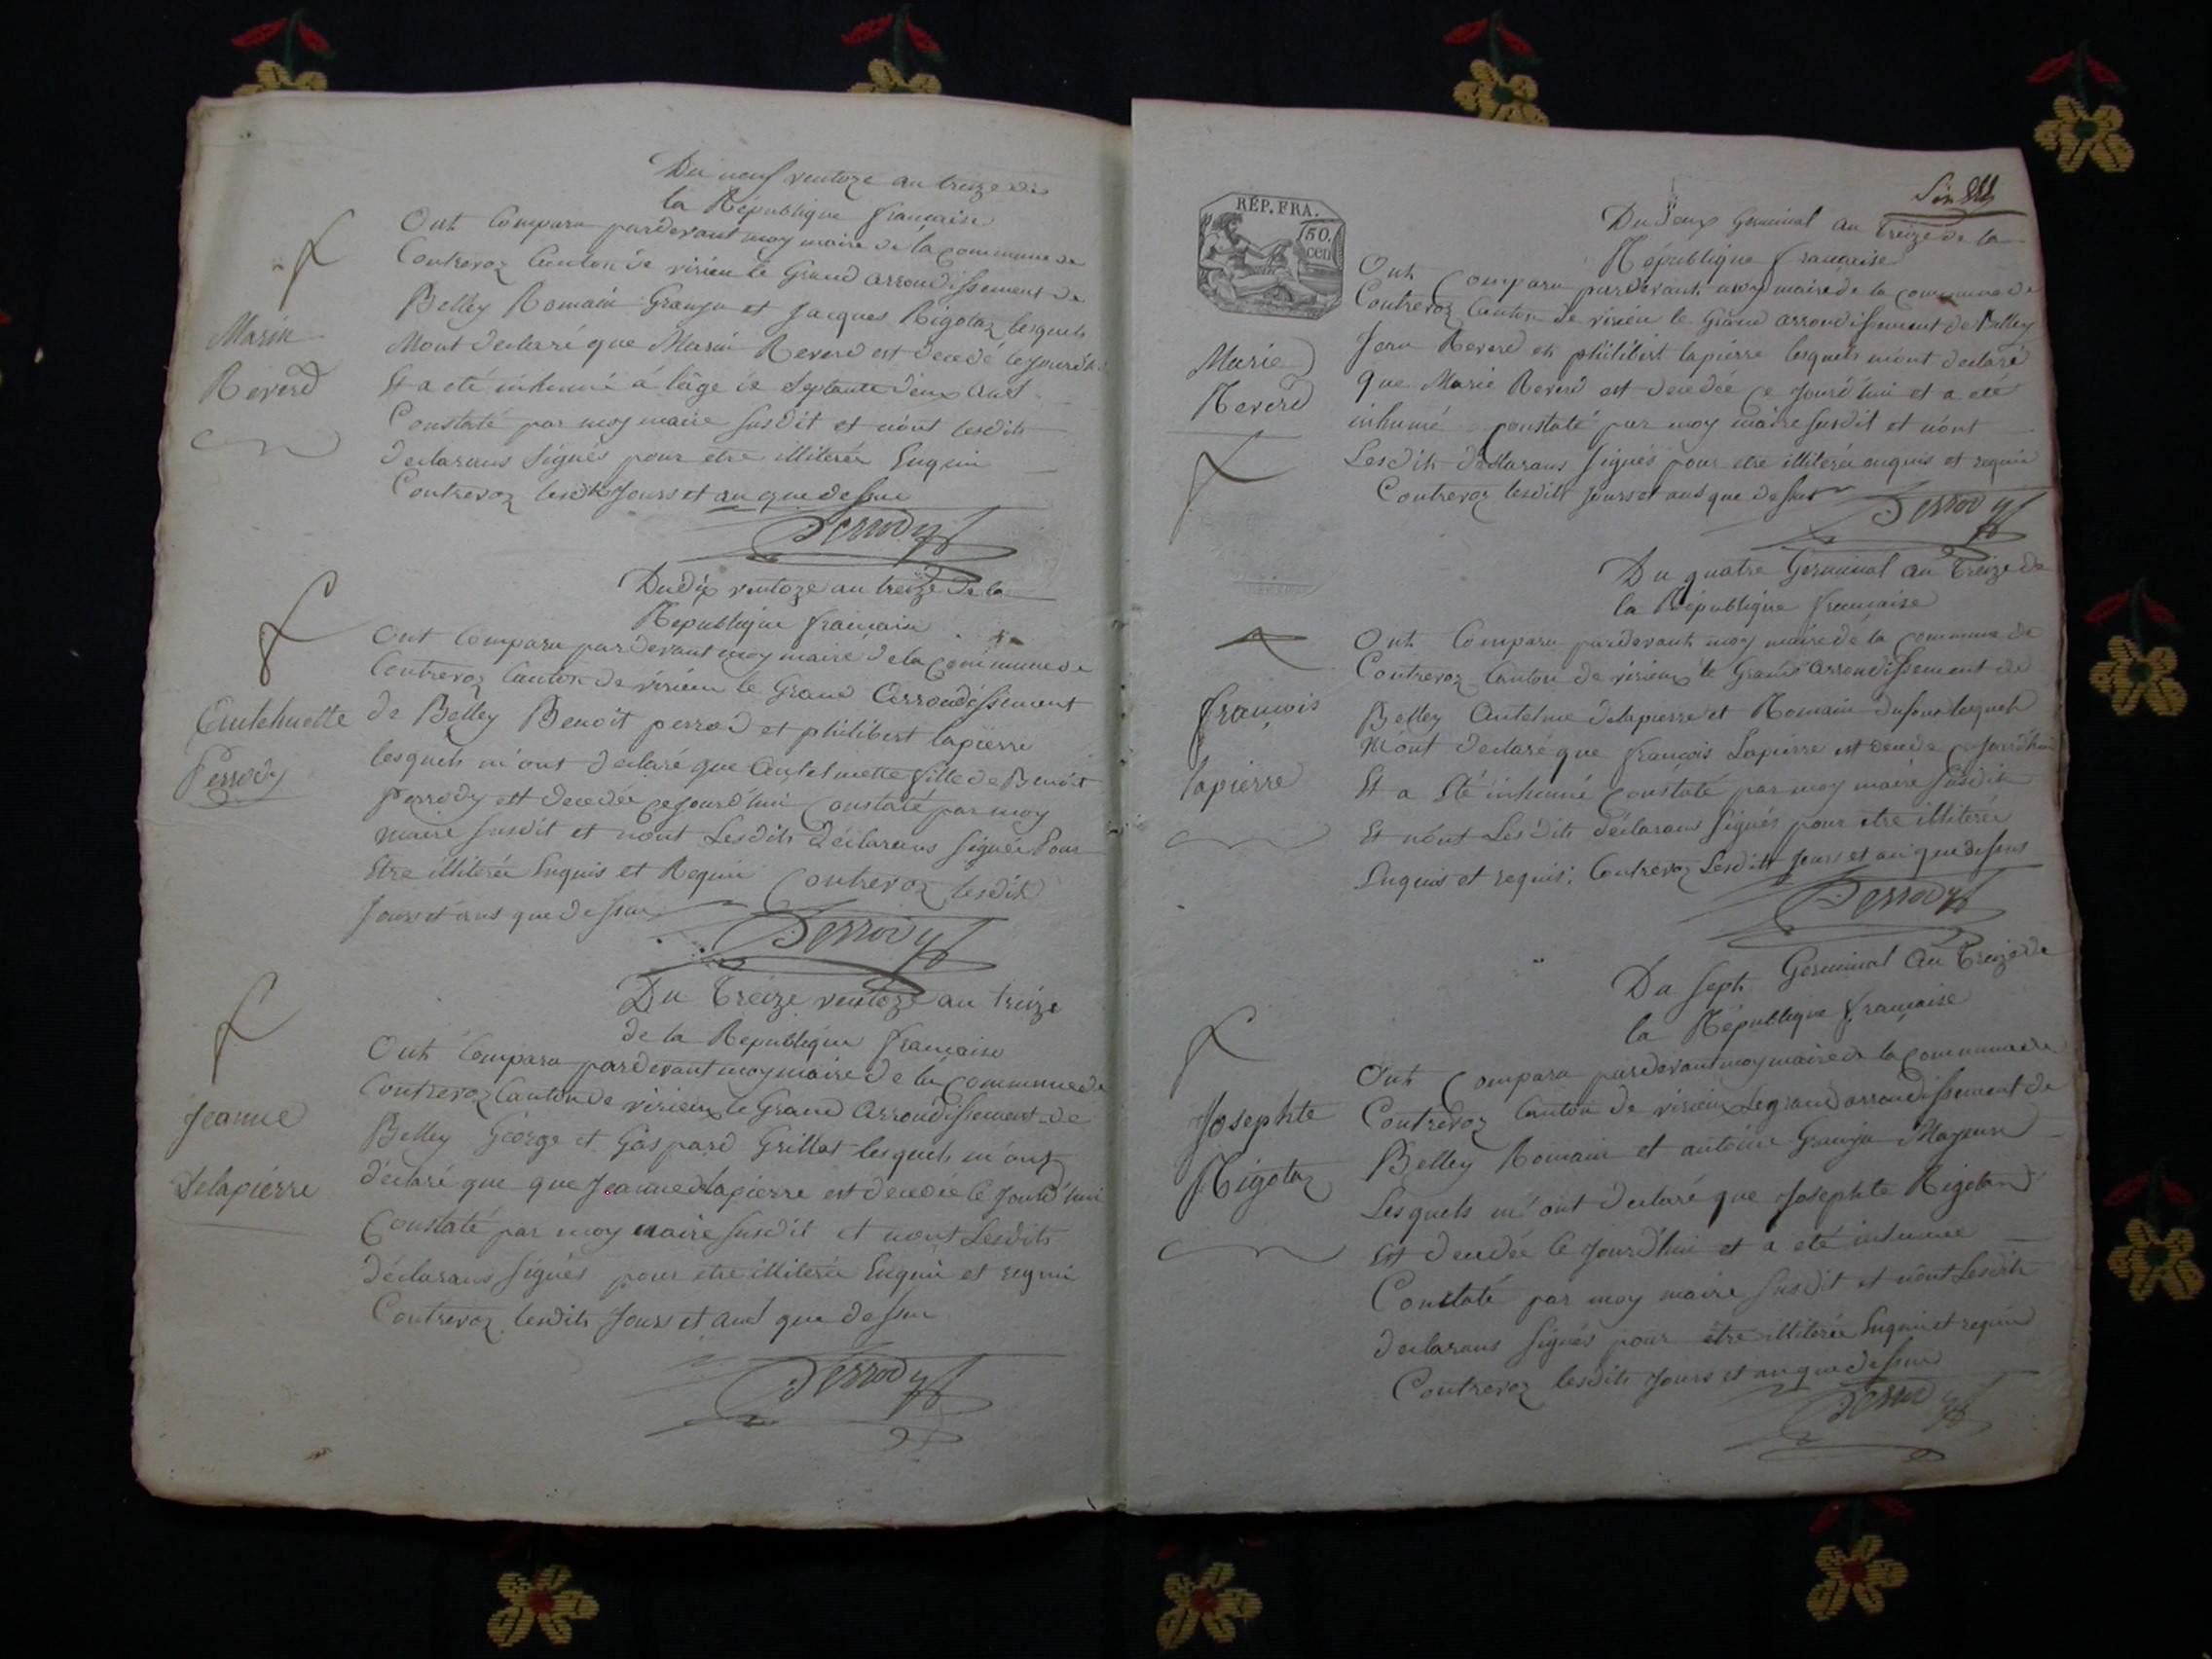 Du neuf ventoze an treize de
la République française
Ont Comparu pardevant moy maire de la commune de
Contrevoz Canton de virieu le Grand arrondissement de
Belley Romain Granju et Jacques Rigotaz lesquels
Mont declaré que Marin Reverd est decedé ce jourdh
Et a eté inhumé á lâge de septante deux ans
Constaté par moy maire susdit et nónt lesdits
declarans signés pour etre illiterée Enquin
Contrevoz lesdits Jours et an que dessus
Marin
Reverd
Perrody
Du dix ventoze an treize de la
République française
Ont Comparu pardevant moy maire de la commune de
Contrevoz Canton de virieu le Grand Arrondissement
de Belley Benoit perrod et philibert lapierre
lesquels m'ont declaré que Antelmette fille de Benoit
perrody est decedée ce jourd'hui Constaté par moy
maire susdit et nont Lesdits déclarans signée Pour
Etre illiterée Enquis et Requis Contrevoz lesdits
Jours et ans que dessus
Perrody
Perrody
Du Treize ventoze an treize
de la République francaise
Ont Comparu pardevant moy maire de la commune de
Contrevoz Canton de virieux le Grand Arrondissement de
Belley George et Gaspard Grillet lesquels m'ont
déclaré que que Jeanne delapierre est decedée ce Jourd'hui
Constaté par moy maire susdit et nont Lesdits
déclarans signés pour etre illiterée Enquis et requis
Contrevoz lesdits Jours et ans que dessus
Jeanne
Delapierre
Perrody
RÉP. FRA.
50.
cen
Du Deux Germinal an Treize de la
République française
Ont Comparu pardevant moy maire de la commune de
Contrevoz Canton de virieu le Grand arrondissement de Belley
Jean Reverd et philibert lapierre lesquels mont declaré
que Marie Reverd est decedée ce Jourd'hui et a eté
inhumé constaté par moy maire susdit et nónt
Lesdits declarans signés pour etre illiterée enquis et requis
Contrevoz lesdits Jours et ans que dessus
Marie
Reverd
Perrody
Du quatre Germinal an Treize de
la République francaise
Ont Comparu pardevant moy maire de la commune de
Contrevoz Canton de virieux le Grand arrondissement de
Belley Antelme delapierre et Romain lesquels
M'ónt declaré que françois Lapierre est decedé ce Jourd'hui
Et a Eté inhumé Constaté par moy maire susdit
Et nónt Lesdits déclarans signés pour etre illiterée
Enquis et requis. Contrevoz Lesdits Jours et an que dessus
françois
lapierre
Perrody
Du Sept Germinal an Treize de
la République française
Ont Comparu pardevant moy maire de la commune de
Contrevoz Canton de virieux Le grand arrondissement de
Belley Romain et antoine Granju Majeurs
Lesquels m'ont declaré que Josephte Rigotaz
Est decedée ce Jourd'hui et a eté inhumee
Constaté par moy maire susdit et nónt Lesdits
declarans signés pour être illiterée Enquis et requis
Contrevoz lesdits Jours et an que dessus
Josephte
Rigotaz
Perrody